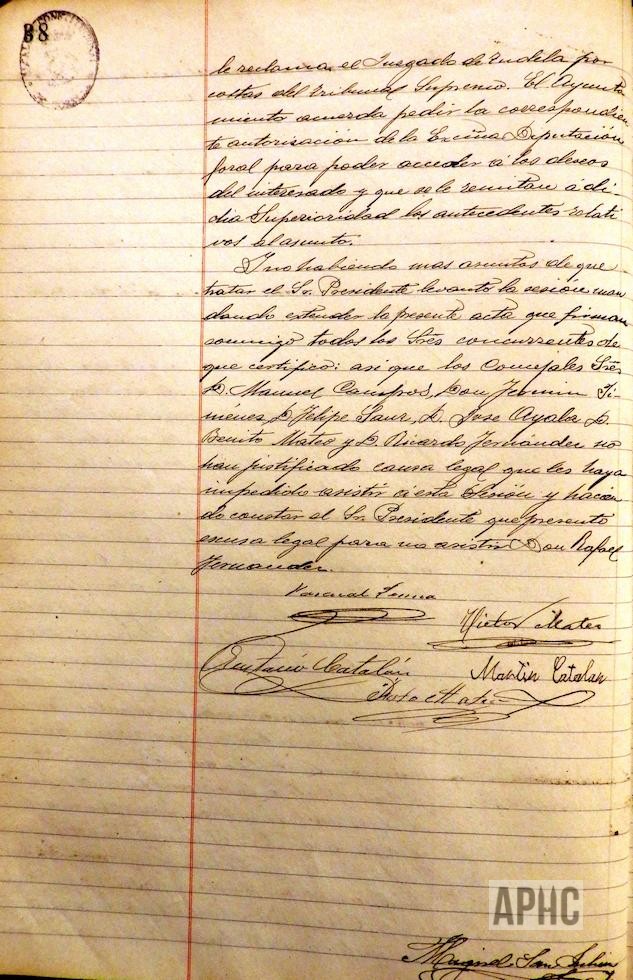 88
le reclama el Juzgado de Tudela por
costas del Tribunal Supremo. El Ayunta
miento acuerda pedir la correspondien
te autorisación de la Excma Diputación
foral para poder acceder á los deseos
del interesado y que se le remitan á di
cha Superioridad los antecedentes relati
vos al asunto.
Y no habiendo mas asuntos de que
tratar el Sr. Presidente levanto la sesion man
dando extender la presente acta que firman
conmigo todos los Sres concurrentes de
que certifico: asi que los Concejales Sres
D. Manuel Campos, Don Fermin Ji
menez, D. Felipe Sanz, D. Jose Ayala D.
Benito Mateo y D. Ricardo Fernández no
han justificado causa legal que les haya
impedido asistir á esta Sesión y hacien
do constar el Sr. Presidente que presento
escusa legal para no asistir Don Rafael
Fernandez.
Pascual
Victor Mateo
Catalán
Martin Catalan
Mateo
APHC
Miguel San